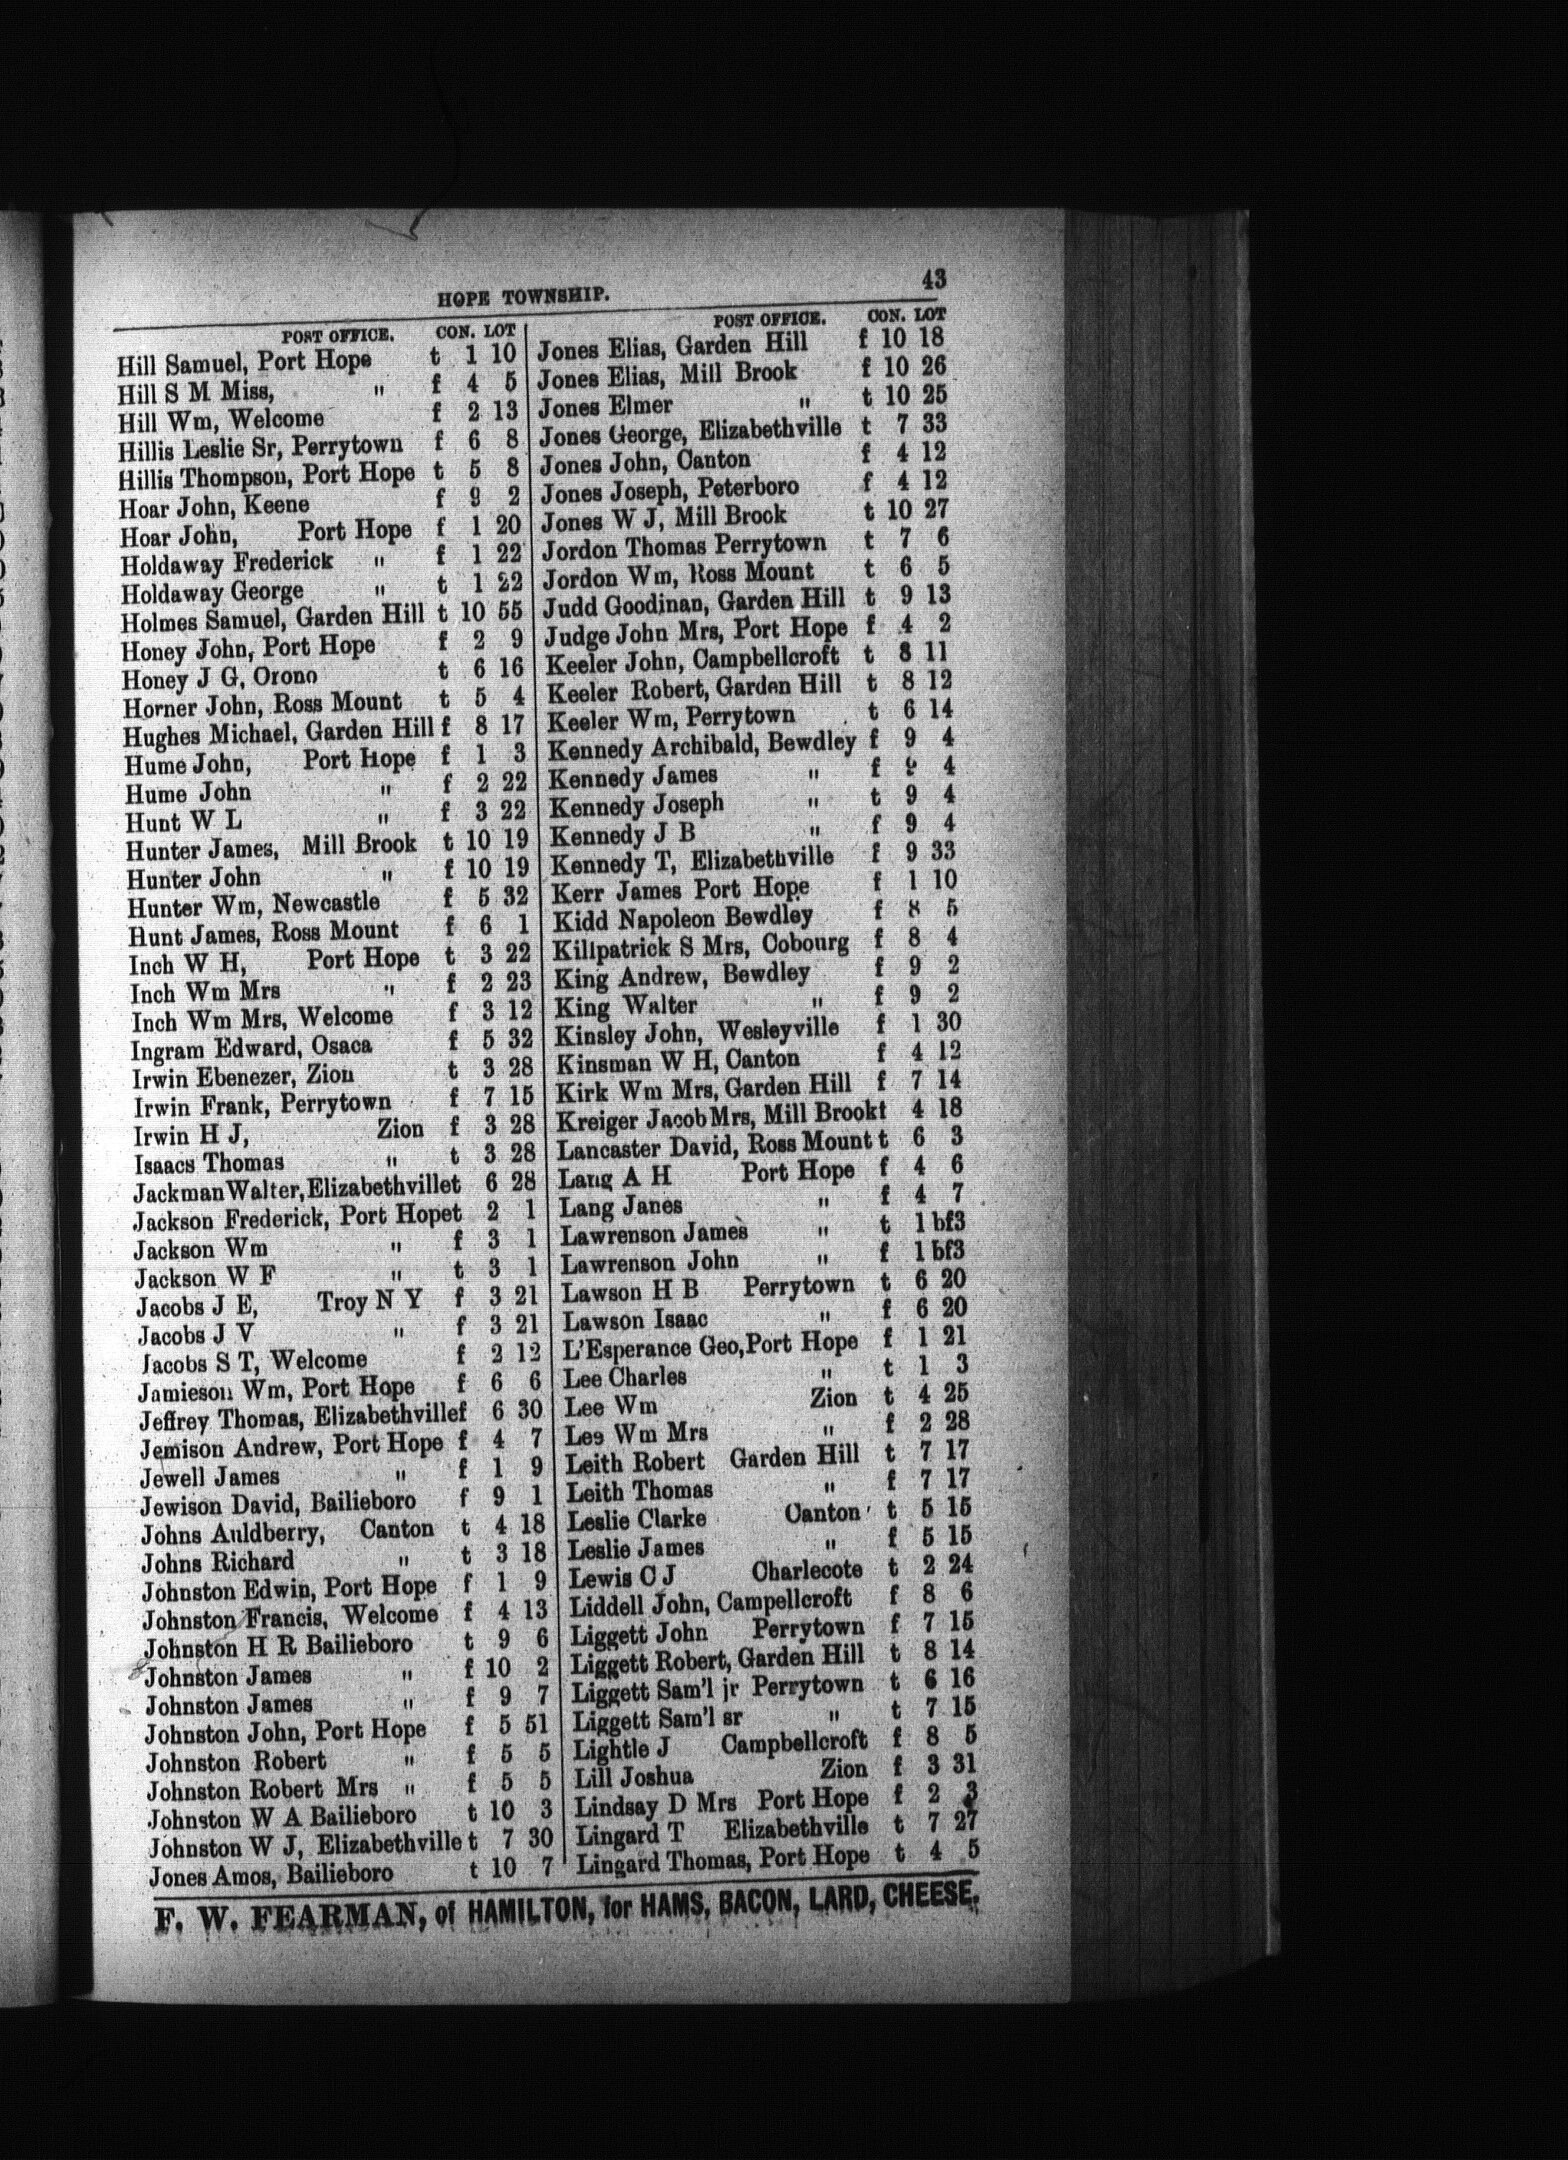 43
HOPE TOWNSHIP.
POST OFFICE. CON. LOT
Hill Samuel, Port Hope t 1 10
Hill S M Miss, " f 4 5
Hill Wm, Welcome f 2 13
Hillis Leslie Sr, Perrytown f 6 8
Hillis Thompson, Port Hope t 5 8
Hoar John, Keene f 9 2
Hoar John, Port Hope f 1 20
Holdaway Frederick " f 1 22
Holdaway George " t 1 22
Holmes Samuel, Garden Hill t 10 55
Honey John, Port Hope f 2 9
Honey J G, Orono t 6 16
Horner John, Ross Mount t 5 4
Hughes Michael, Garden Hill f 8 17
Hume John, Port Hope f 1 3
Hume John " f 2 22
Hunt W L " f 3 22
Hunter James, Mill Brook t 10 19
Hunter John " f 10 19
Hunter Wm, Newcastle f 5 32
Hunt James, Ross Mount f 6 1
Inch W H, Port Hope t 3 22
Inch Wm Mrs " f 2 23
Inch Wm Mrs, Welcome f 3 12
Ingram Edward, Osaca f 5 32
Irwin Ebenezer, Zion t 3 28
Irwin Frank, Perrytown f 7 15
Irwin H J, Zion f 3 28
Isaacs Thomas " t 3 28
Jackman Walter, Elizabethville t 6 28
Jackson Frederick, Port Hope t 2 1
Jackson Wm " f 3 1
Jackson W F " t 3 1
Jacobs J E, Troy N Y f 3 21
Jacobs J V " f 3 21
Jacobs S T, Welcome f 2 12
Jamieson Wm, Port Hope f 6 6
Jeffrey Thomas, Elizabethville f 6 30
Jemison Andrew, Port Hope f 4 7
Jewell James " f 1 9
Jewison David, Bailieboro f 9 1
Johns Auldberry, Canton t 4 18
Johns Richard " t 3 18
Johnston Edwin, Port Hope f 1 9
Johnston Francis, Welcome f 4 13
Johnston H R Bailieboro t 9 6
Johnston James " f 10 2
Johnston James " f 9 7
Johnston John, Port Hope f 5 51
Johnston Robert " f 5 5
Johnston Robert Mrs " f 5 5
Johnston W A Bailieboro t 10 3
Johnston W J, Elizabethville t 7 30
Jones Amos, Bailieboro t 10 7
POST OFFICE. CON. LOT
Jones Elias, Garden Hill f 10 18
Jones Elias, Mill Brook f 10 26
Jones Elmer " t 10 25
Jones George, Elizabethville t 7 33
Jones John, Canton f 4 12
Jones Joseph, Peterboro f 4 12
Jones W J, Mill Brook t 10 27
Jordon Thomas Perrytown t 7 6
Jordon Wm, Ross Mount t 6 5
Judd Goodinan, Garden Hill t 9 13
Judge John Mrs, Port Hope f 4 2
Keeler John, Campbellcroft t 8 11
Keeler Robert, Garden Hill t 8 12
Keeler Wm, Perrytown t 6 14
Kennedy Archibald, Bewdley f 9 4
Kennedy James " f 9 4
Kennedy Joseph " t 9 4
Kennedy J B " f 9 4
Kennedy T, Elizabethville f 9 33
Kerr James Port Hope f 1 10
Kidd Napoleon Bewdley f 8 5
Killpatrick S Mrs, Cobourg f 8 4
King Andrew, Bewdley f 9 2
King Walter " f 9 2
Kinsley John, Wesleyville f 1 30
Kinsman W H, Canton f 4 12
Kirk Wm Mrs, Garden Hill f 7 14
Kreiger Jacob Mrs, Mill Brook t 4 18
Lancaster David, Ross Mount t 6 3
Lang A H Port Hope f 4 6
Lang Janes " f 4 7
Lawrenson James " t 1 bf3
Lawrenson John " f 1 bf3
Lawson H B Perrytown t 6 20
Lawson Isaac " f 6 20
L'Esperance Geo, Port Hope f 1 21
Lee Charles " t 1 3
Lee Wm Zion t 4 25
Lee Wm Mrs " f 2 28
Leith Robert Garden Hill t 7 17
Leith Thomas " f 7 17
Leslie Clarke Canton t 5 15
Leslie James " f 5 15
Lewis C J Charlecote t 2 24
Liddell John, Campellcroft f 8 6
Liggett John Perrytown f 7 15
Liggett Robert, Garden Hill t 8 14
Liggett Sam'l jr Perrytown t 6 16
Liggett Sam'l sr " t 7 15
Lightle J Campbellcroft f 8 5
Lill Joshua Zion f 3 31
Lindsay D Mrs Port Hope f 2 3
Lingard T Elizabethville t 7 27
Lingard Thomas, Port Hope t 4 5
F. W. FEARMAN, of HAMILTON, for HAMS, BACON, LARD, CHEESE.